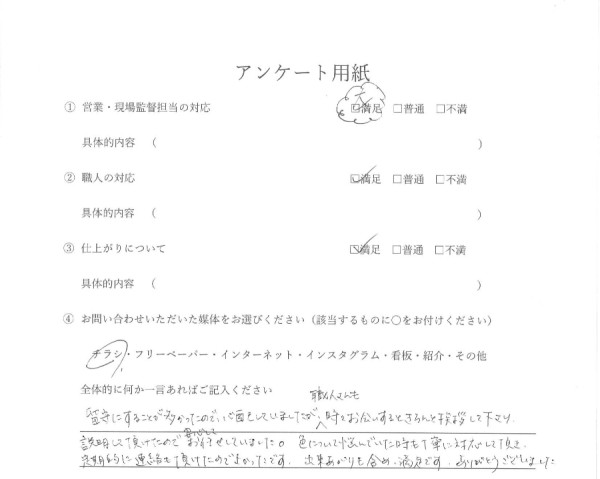 アンケート用紙
① 営業・現場監督担当の対応 大 ☑満足 □普通 □不満
具体的内容 ( )
② 職人の対応 ☑満足 □普通 □不満
具体的内容 ( )
③ 仕上がりについて ☑満足 □普通 □不満
具体的内容 ( )
④ お問い合わせいただいた媒体をお選びください（該当するものに○をお付けください）
チラシ・フリーペーパー・インターネット・インスタグラム・看板・紹介・その他
全体的に何か一言あればご記入ください
職人さんも
留守にすることが多かったので、心配していましたが、時々お会いするときちんと挨拶して下さり
安心して
説明して頂けたのでお任せしていました。色について悩んでいた時も丁寧に対応して頂き、
定期的に連絡も頂けたのでよかったです。出来あがりも含め、満足です。ありがとうございました